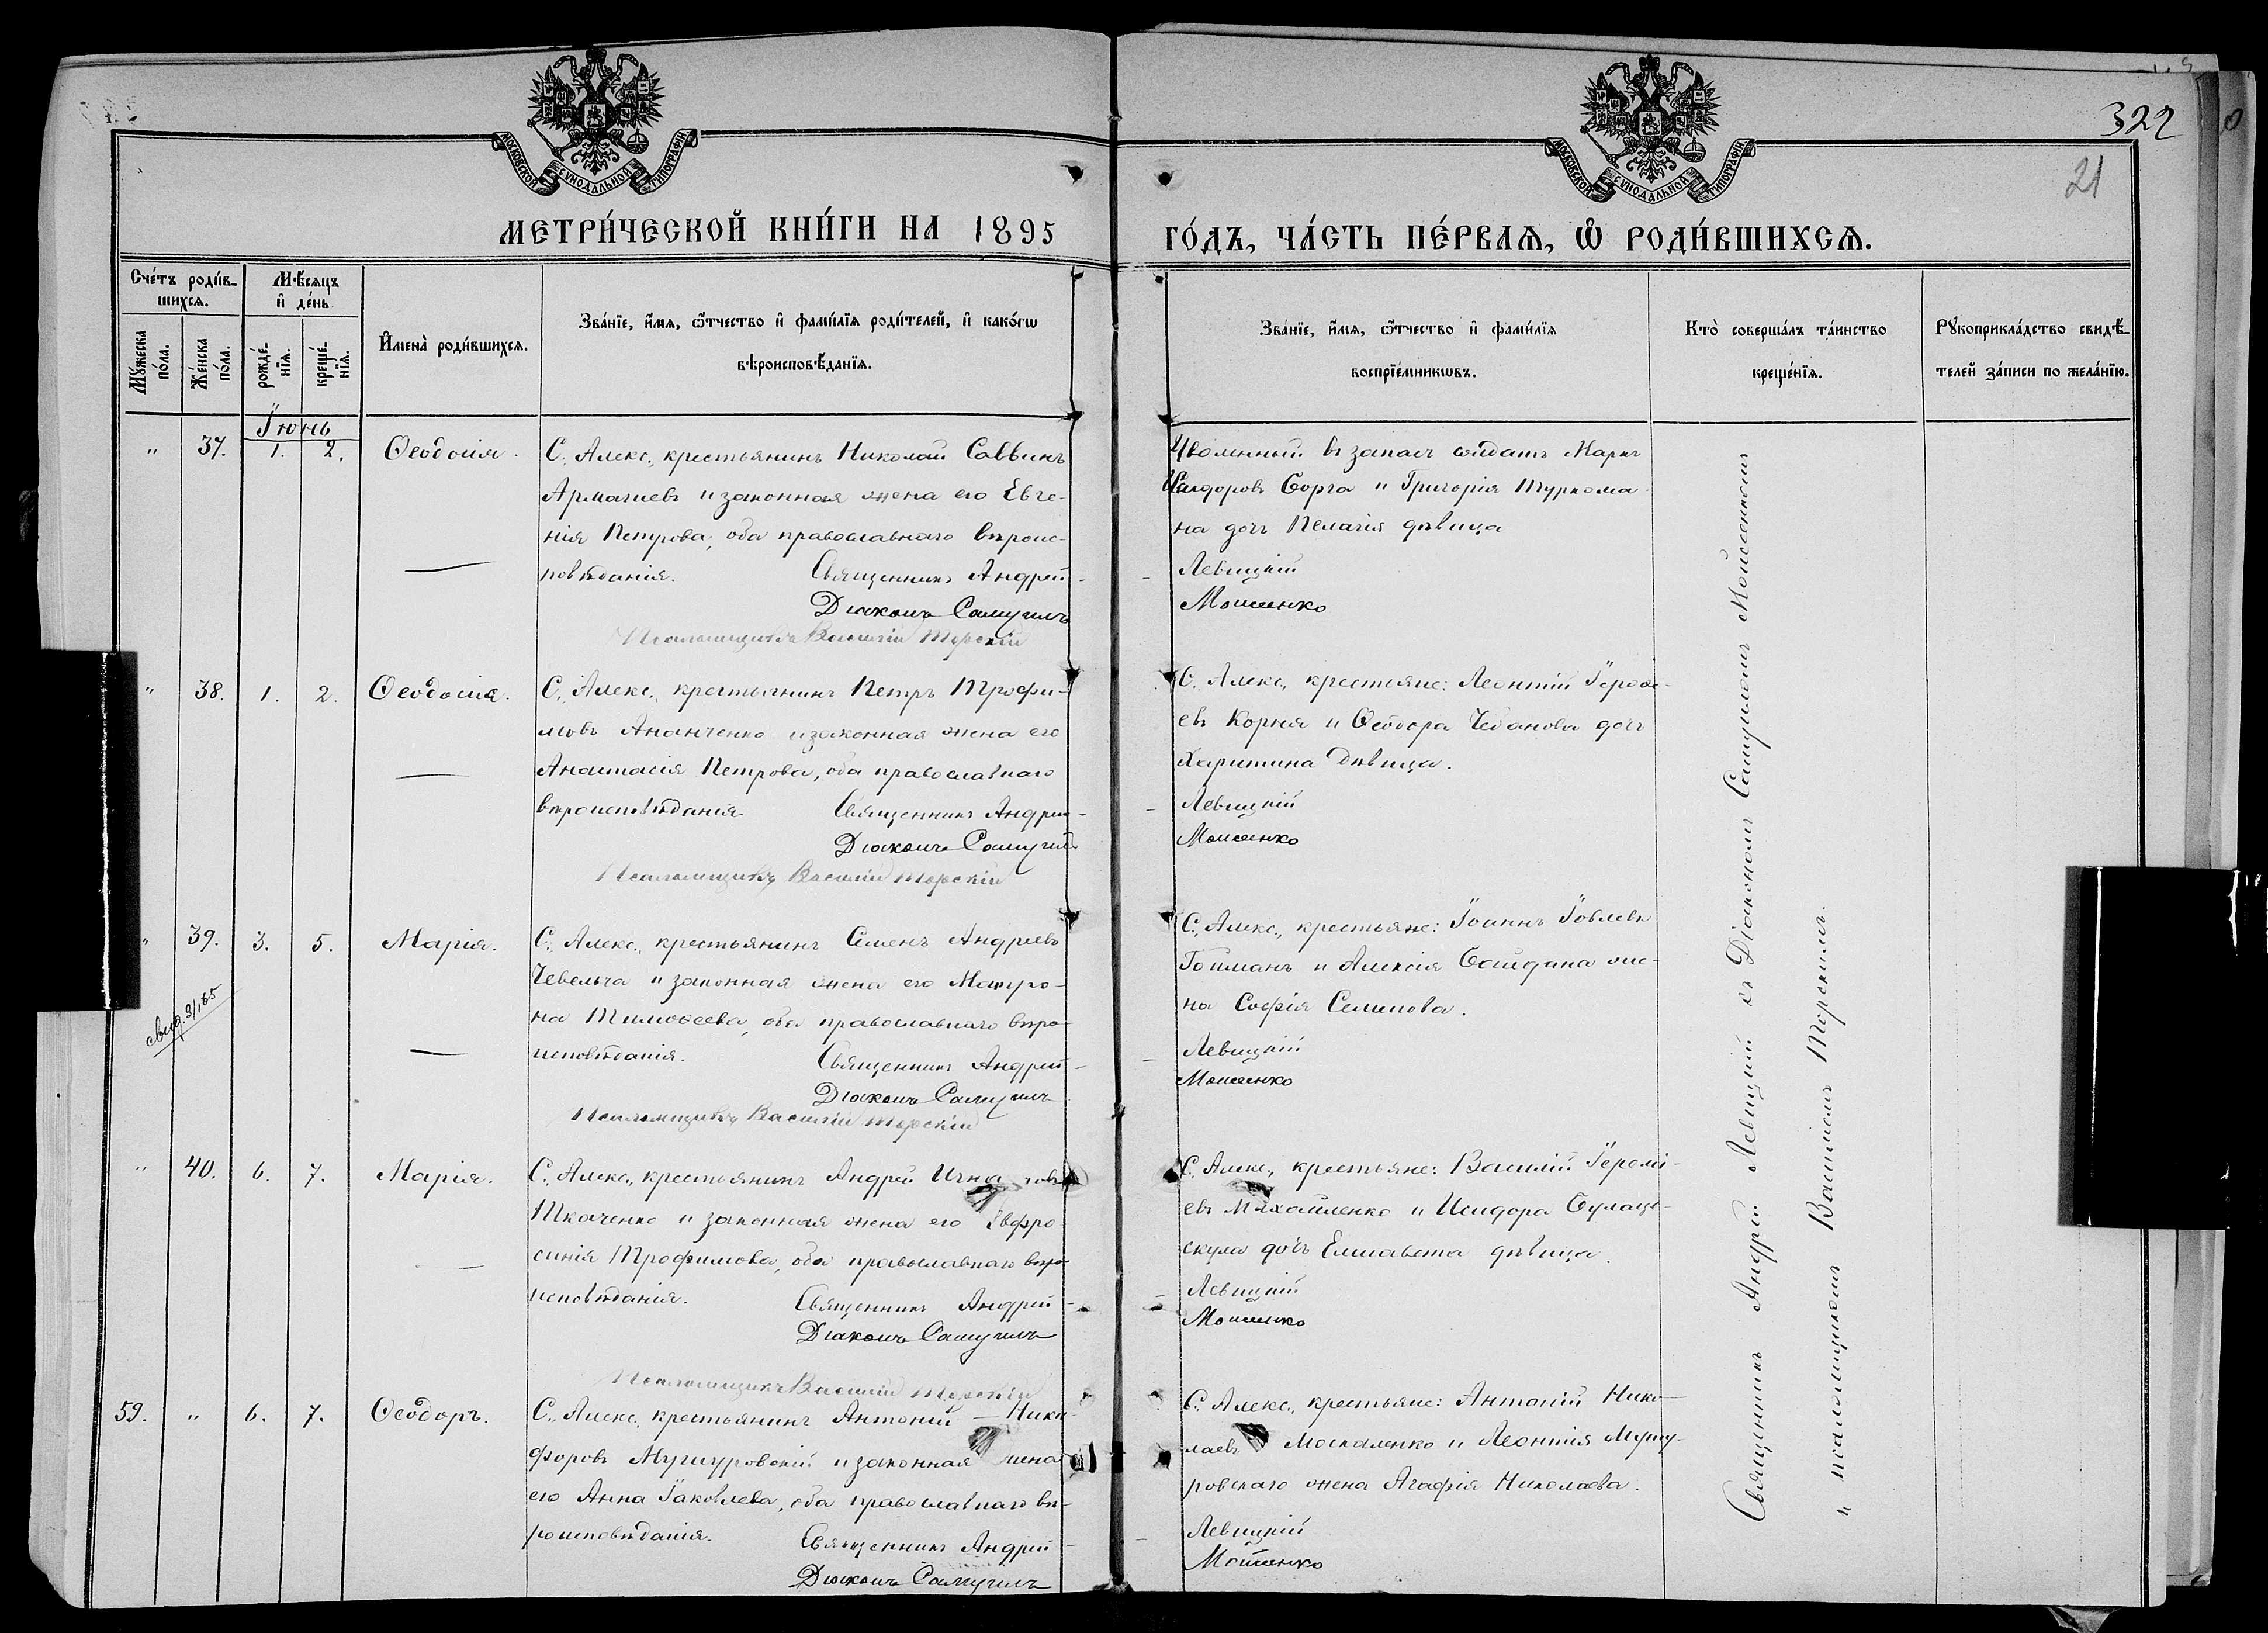 322
21
МОСКОВСКОЙ СѴНОДАЛЬНОЙ ТИПОГРАФІИ
МОСКОВСКОЙ СѴНОДАЛЬНОЙ ТИПОГРАФІИ
МЕТРИ́ЧЕСКОЙ КНИ́ГИ НА 1895
ГО́ДЪ, ЧА́СТЬ ПЕ́РВАѦ, Ѽ РОДИ́ВШИХСѦ.
Сче́тъ роди́в-
шихсѧ.
Мꙋ́жеска
по́ла.
Же́нска
по́ла.
Мѣ́сяцъ
и҆ де́нь
рожде́-
нїѧ.
креще́-
нїѧ.
И҆мена̀ роди́вшихсѧ.
Зва́нїе, и҆́мѧ, ѻ҆́тчество и҆ фами́лїѧ роди́телей, и҆ како́гѡ
вѣроисповѣ́данїѧ.
Зва́нїе, и҆́мѧ, ѻ҆́тчество и҆ фами́лїѧ
воспрїе́мникѡвъ.
Кто̀ соверша́лъ та́инство
креще́нїѧ.
Рꙋкоприкла́дство свидѣ́-
телей за́писи по жела́нїю.
Іюнь
" 37. 1. 2. Ѳеодосія.
С. Алекс., крестьянинъ Николай Саввинъ
Армашевъ и законная жена его Евге-
нія Петрова, оба православнаго вѣроис-
повѣданія. Священникъ Андрей
Діаконъ Самуилъ
Псаломщикъ Василій Торскій
Уволенный въ запасъ солдатъ Маркъ
Исидоровъ Борга и Григорія Туркома-
на дочь Пелагія дѣвица
Левицкій
Моисеенко
" 38. 1. 2. Ѳеодосія.
С. Алекс., крестьянинъ Петръ Трофи-
мовъ Ананченко и законная жена его
Анастасія Петрова, оба православнаго
вѣроисповѣданія. Священникъ Андрей
Діаконъ Самуилъ
Псаломщикъ Василій Торскій
С. Алекс., крестьяне: Леонтій Ѳ
евъ Корня и Ѳеодора Чебанова дочь
Харитина дѣвица.
Левицкій
Моисеенко
" 39. 3. 5. Марія.
свид. 2/165
С. Алекс., крестьянинъ Семенъ Андреевъ
Чебельча и законная жена его Матро-
на Тимоѳеева, оба православнаго вѣро-
исповѣданія. Священникъ Андрей
Діаконъ Самуилъ
Псаломщикъ Василій Торскій
С. Алекс., крестьяне: Іоаннъ Іовлевъ
Гойманъ и Алексія Бойдана же-
на Софія Семенова.
Левицкій
Моисеенко
" 40. 6. 7. Марія.
С. Алекс., крестьянинъ Андрей Игнатовъ
Ткаченко и законная жена его Евфро-
синія Трофимова, оба православнаго вѣро-
исповѣданія. Священникъ Андрей
Діаконъ Самуилъ
Псаломщикъ Василій Торскій
С. Алекс., крестьяне: Василій Іеремі-
евъ Михайленко и Исидора Булаце-
скула дочь Елисавета дѣвица.
Левицкій
Моисеенко
59. " 6. 7. Ѳеодоръ.
С. Алекс., крестьянинъ Антоній Ники-
форовъ Мушуровскій и законная жена
его Анна Іаковлева, оба православнаго вѣ-
роисповѣданія. Священникъ Андрей
Діаконъ Самуилъ
С. Алекс., крестьяне: Антоній Нико-
лаевъ Москаленко и Леонтія Мушу-
ровскаго жена Агафія Николаева.
Левицкій
Моисеенко
Священникъ Андрей Левицкій съ Діакономъ Самуиломъ Моисеенкомъ
и псаломщикомъ Василіемъ Торскимъ.